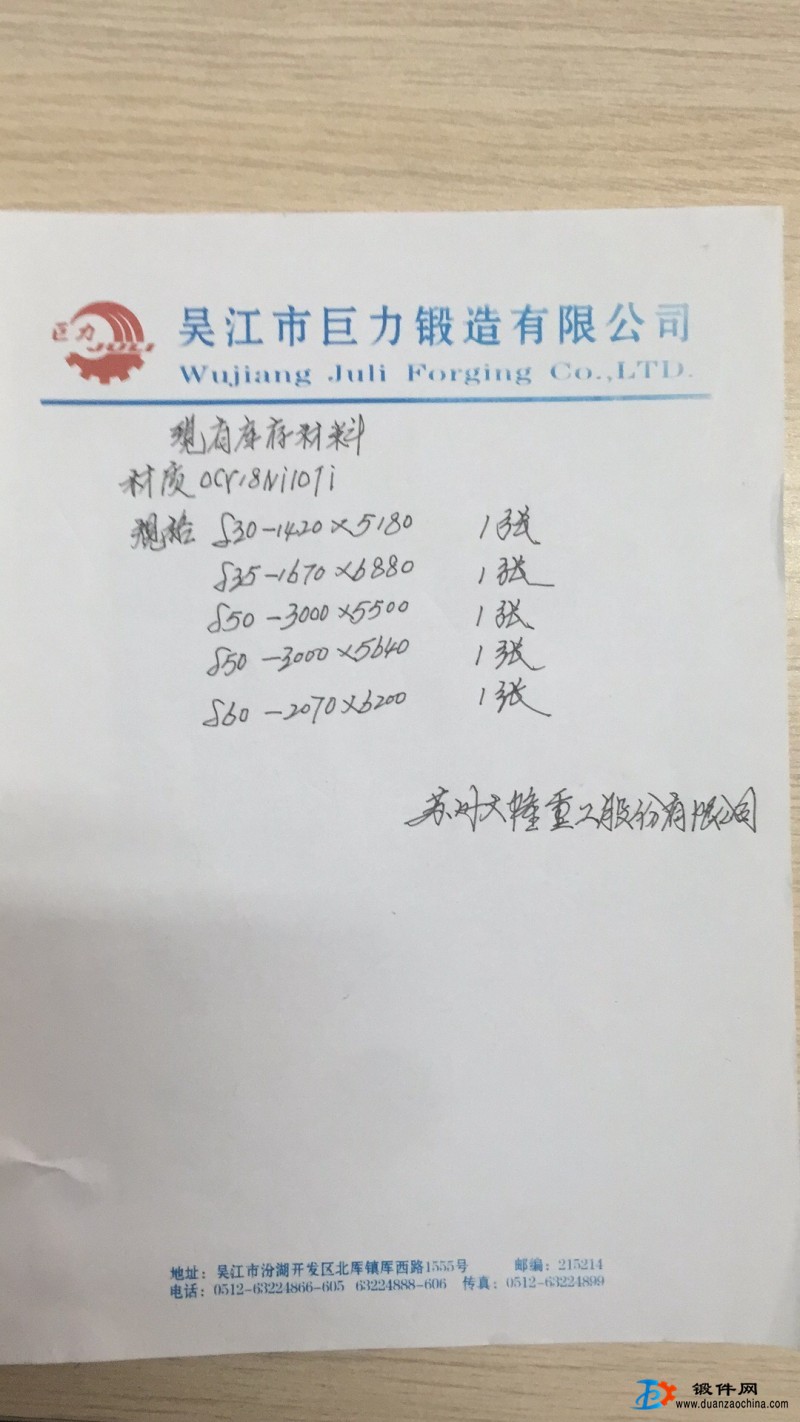 巨力
JULI
吴江市巨力锻造有限公司
Wujiang Juli Forging Co.,LTD.
现有库存材料
材质 0Cr18Ni10Ti
规格 δ30-1420×5180 1张
δ35-1670×6880 1张
δ50-3000×5500 1张
δ50-3000×5640 1张
δ60-2070×6200 1张
苏州大隆重工股份有限公司
地址：吴江市汾湖开发区北厍镇厍西路1555号 邮编：215214
电话：0512-63224866-605 63224888-606 传真：0512-63224899
锻件网
www.duanzaochina.com